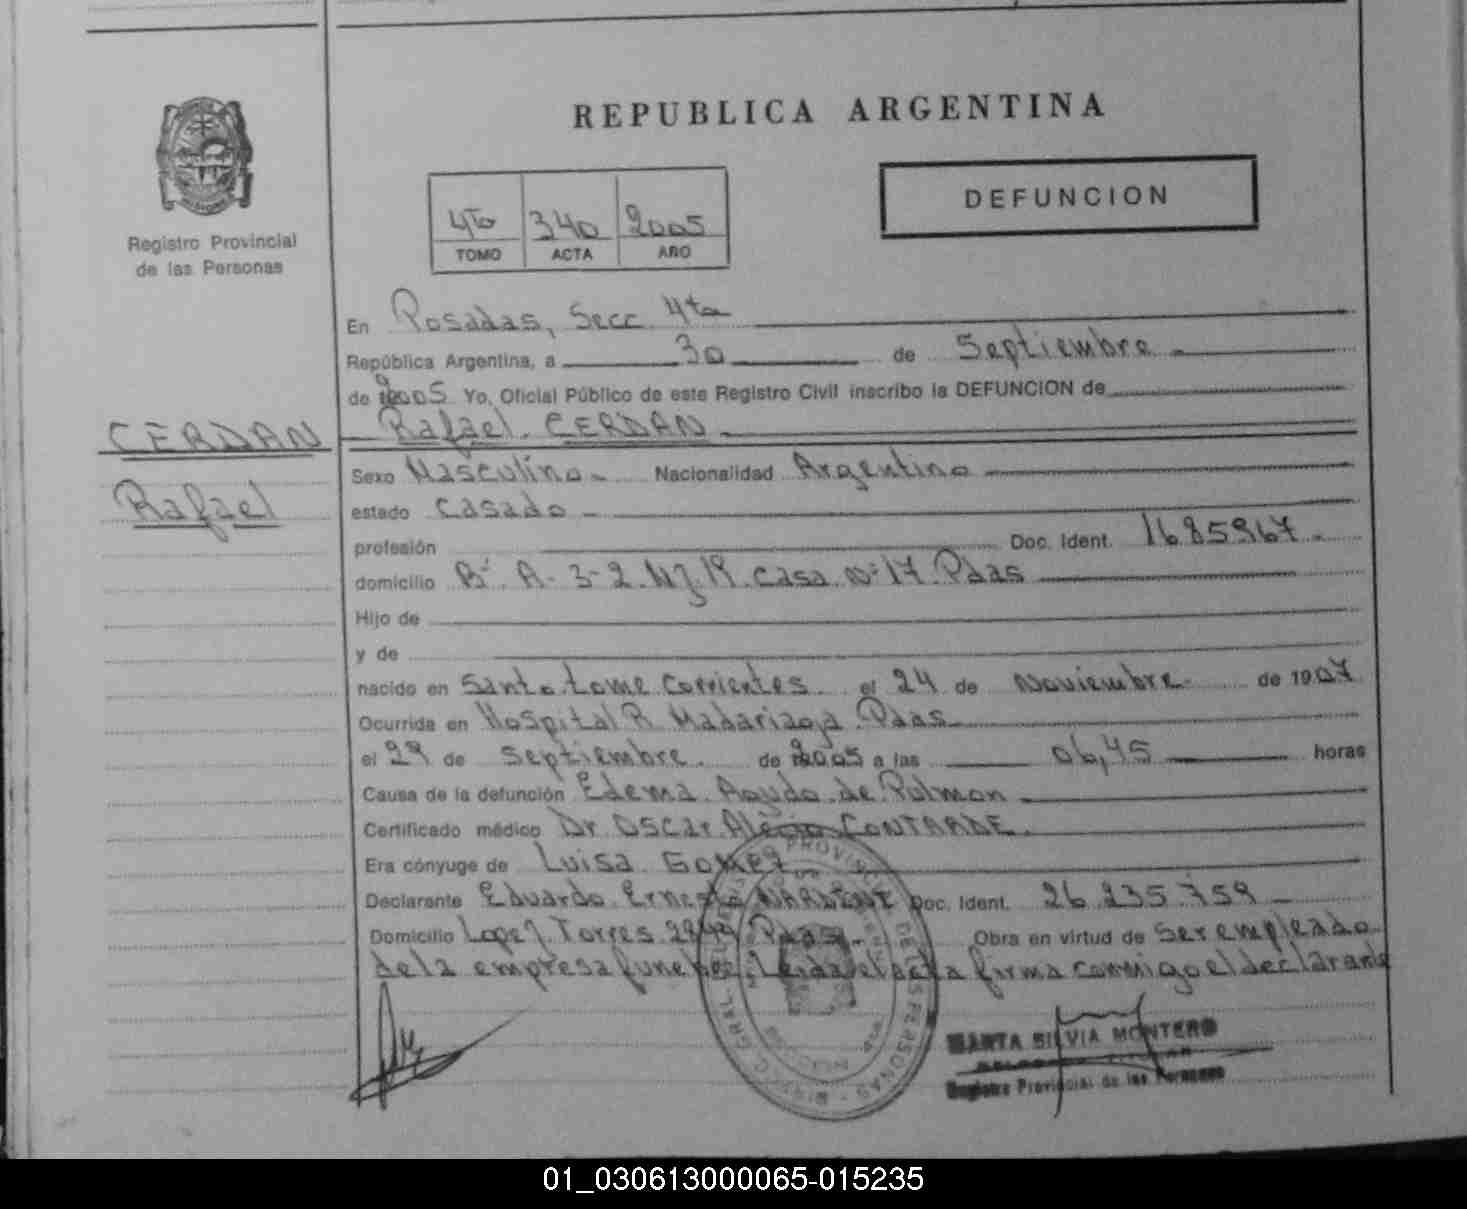 REPUBLICA ARGENTINA
DEFUNCION
4to 340 2005
TOMO ACTA AÑO
Registro Provincial
de las Personas
En Posadas, Secc. 4ta
República Argentina, a 30 de Septiembre
de 2005 Yo, Oficial Público de este Registro Civil inscribo la DEFUNCION de
CERDAN
Rafael
Rafael CERDAN
Sexo Masculino Nacionalidad Argentino
estado Casado
profesión Doc. Ident. 1685967
domicilio B° A-3-2 Mz 19 Casa N° 17 Pdas
Hijo de
y de
nacido en Santo tome Corrientes el 24 de Noviembre de 1907
Ocurrida en Hospital R. Madariaga Pdas
el 29 de Septiembre de 2005 a las 06,45 horas
Causa de la defunción Edema Agudo de Pulmon
Certificado médico Dr Oscar CONTARDE
Era cónyuge de Luisa Gomez
Declarante Eduardo Ernesto Doc. Ident. 26.235.759
Domicilio Lopez Torres Pdas Obra en virtud de Ser empleado
de la empresa funebre. Leida el acta firma conmigo el declarante
MARTA SILVIA MONTERO
Registro Provincial de las Personas
01_030613000065-015235